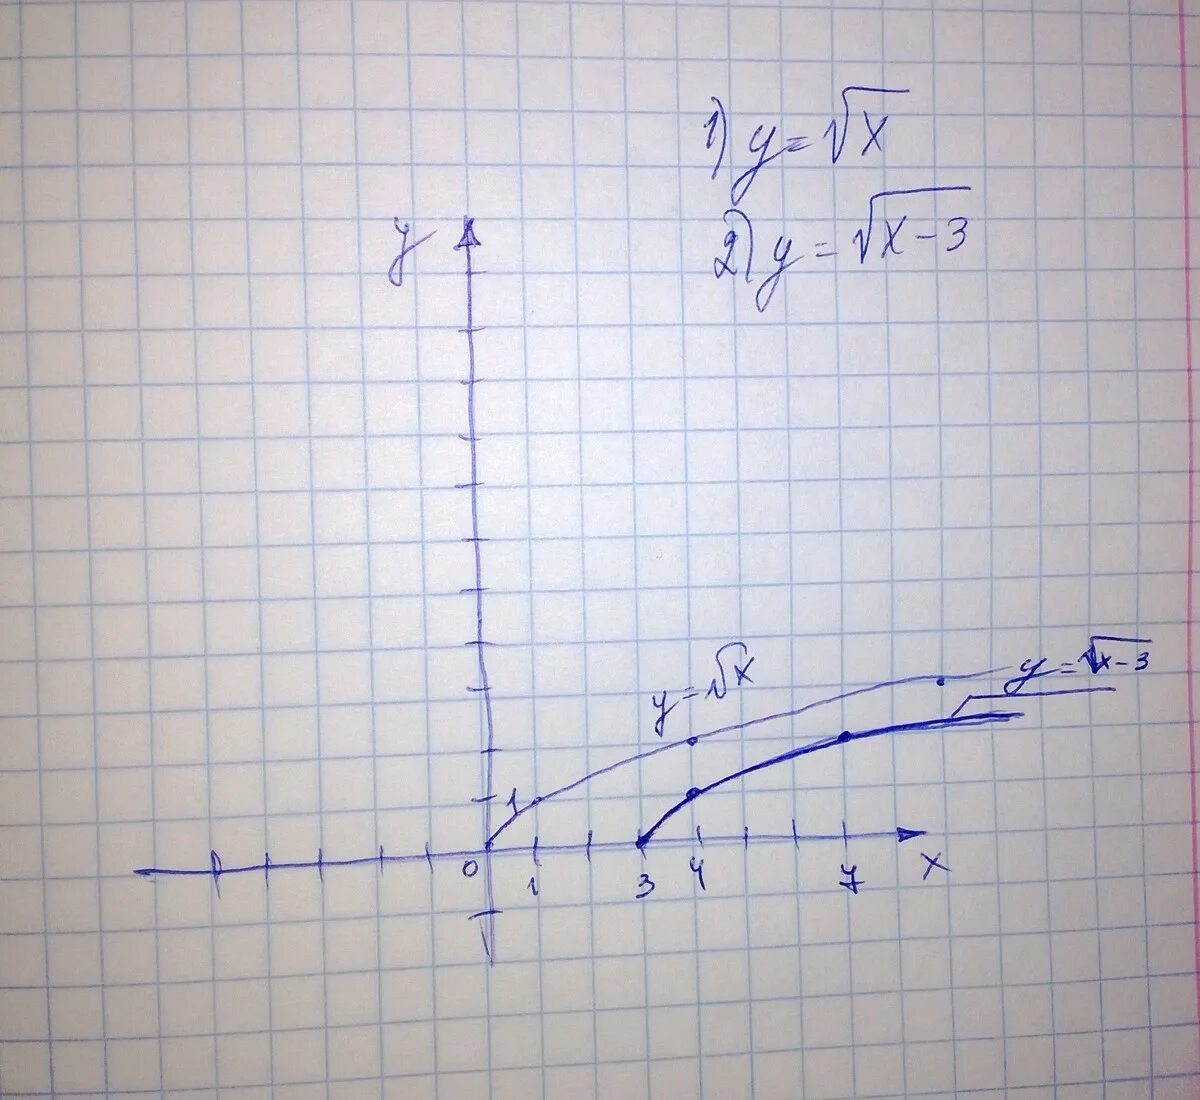 1) y = √x
2) y = √x-3
y
y = √x
y = √x-3
1
0 1 3 4 7 x